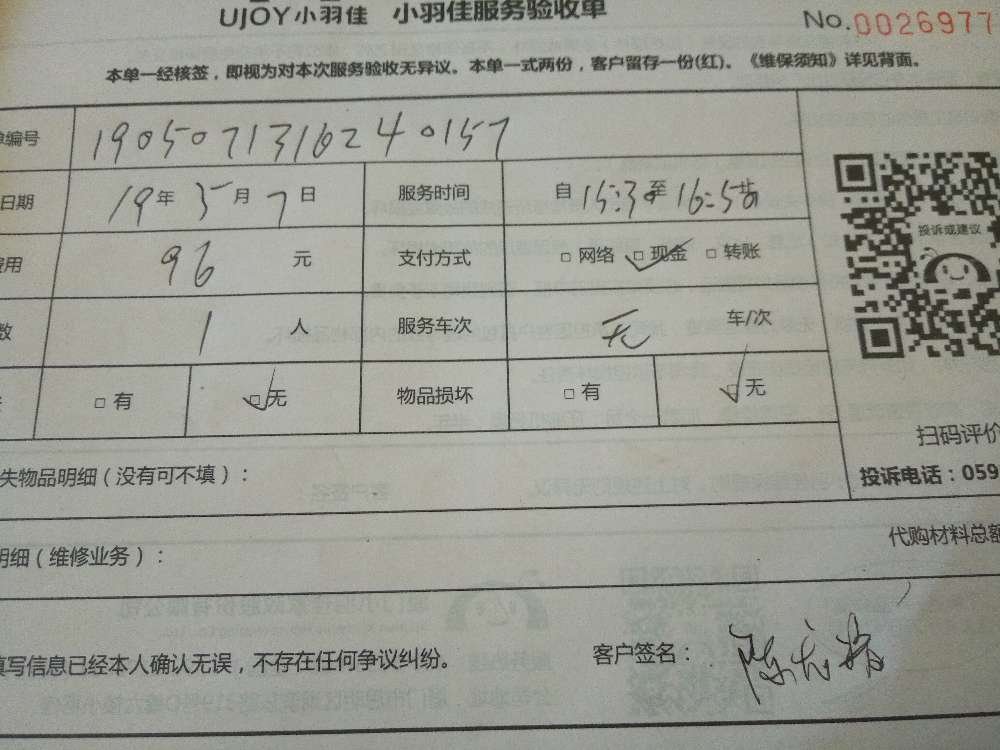 UJOY小羽佳 小羽佳服务验收单
No.0026977
本单一经核签，即视为对本次服务验收无异议。本单一式两份，客户留存一份(红)。《维保须知》详见背面。
编号 1905071316240157
日期 19年5月7日 服务时间 自15:30至16:50
费用 96 元 支付方式 □网络 ☑现金 □转账
数 1 人 服务车次 无 车/次
□有 ☑无 物品损坏 □有 ☑无
投诉或建议
扫码评价
失物品明细（没有可不填）：
投诉电话：059
明细（维修业务）：
代购材料总额
填写信息已经本人确认无误，不存在任何争议纠纷。
客户签名：陈